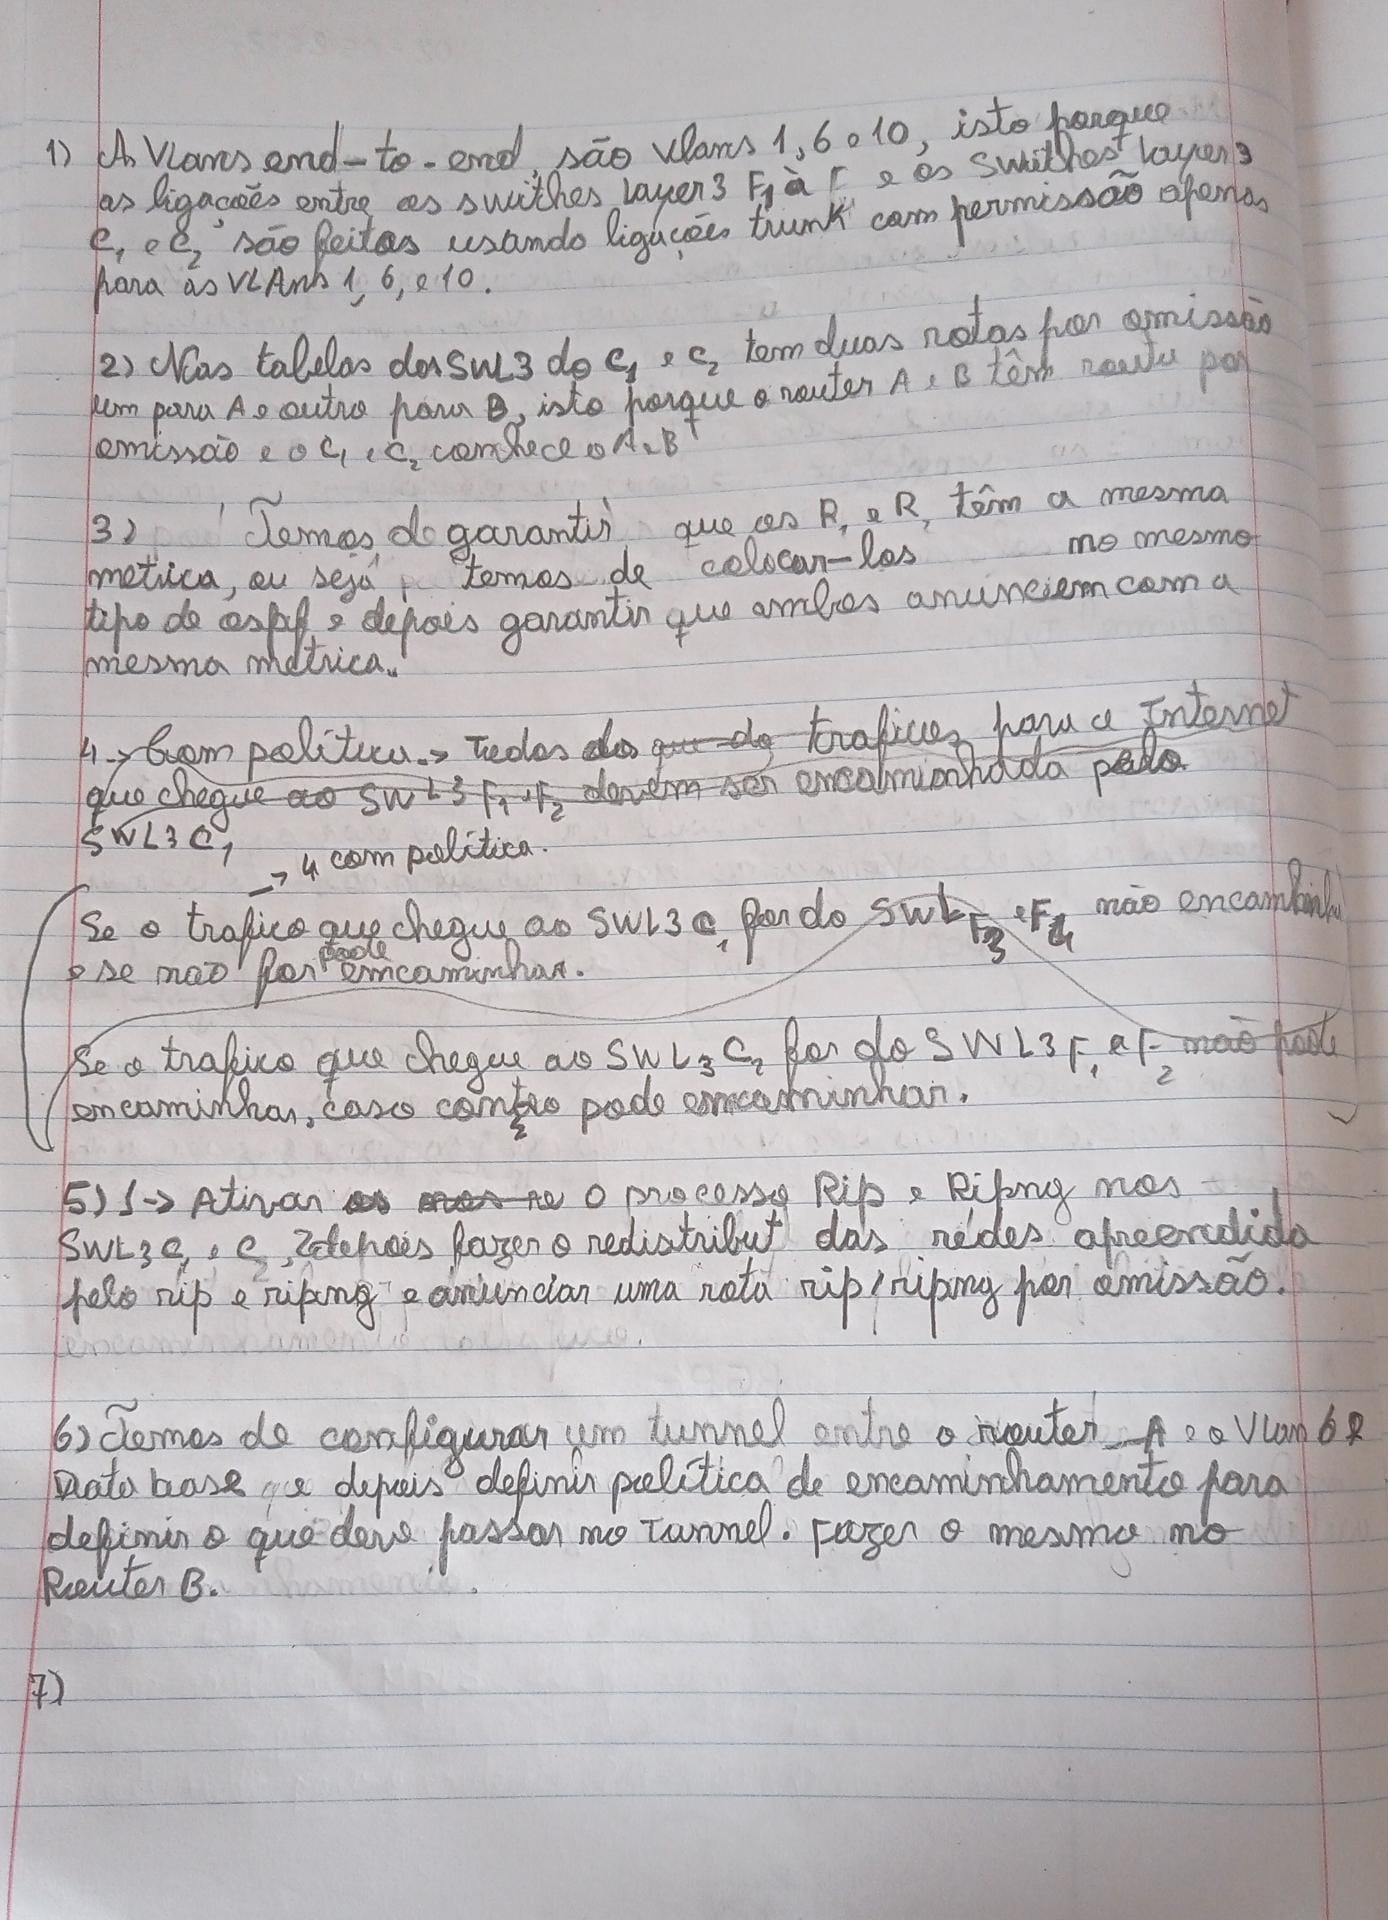 1) As Vlans end-to-end, são vlans 1, 6 e 10, isto porque
as ligações entre os swithes Layer3 F1 à F e os Swithes Layer3
C1 e C2 são feitas usando ligações trunk com permissão apenas
para as VLANs 1, 6, e 10.
2) Nas tabelas dos SWL3 do C1 e C2 tem duas rotas por omissão
um para A e outro para B, isto porque o router A e B têm route por
omissão e o C1 e C2 conhece o A e B
3) Temos de garantir que os R, e R, têm a mesma
metrica, ou seja, temos de colocar-los no mesmo
tipo de ospf e depois garantir que ambos anunciem com a
mesma metrica.
4 -> Com politica -> Todos do que do trafico, para a Internet
que chegue ao SWL3 F1 e F2 devem ser encaminhada pelo
SWL3 C1
-> 4 com politica.
Se o trafico que chegue ao SWL3 C1 for do SWL F3 e F4 não encaminha
e se não for pode encaminhar.
Se o trafico que chegue ao SWL3 C2 for do SWL3 F1 e F2 não pode
encaminhar, caso pode encaminhar.
5) 1-> Ativar o processo Rip e Ripng nos
SWL3 C1 e C2, 2 depois fazer o redistribut das rédes apreendida
pelo rip e ripng e anunciar uma rota rip/ripng por omissão.
6) Temos de configurar um tunnel entre o router A e o Vlan 6 e
Data base e depois definir politica de encaminhamento para
definir o que deve passar no Tunnel. Fazer o mesmo no
Router B.
7)